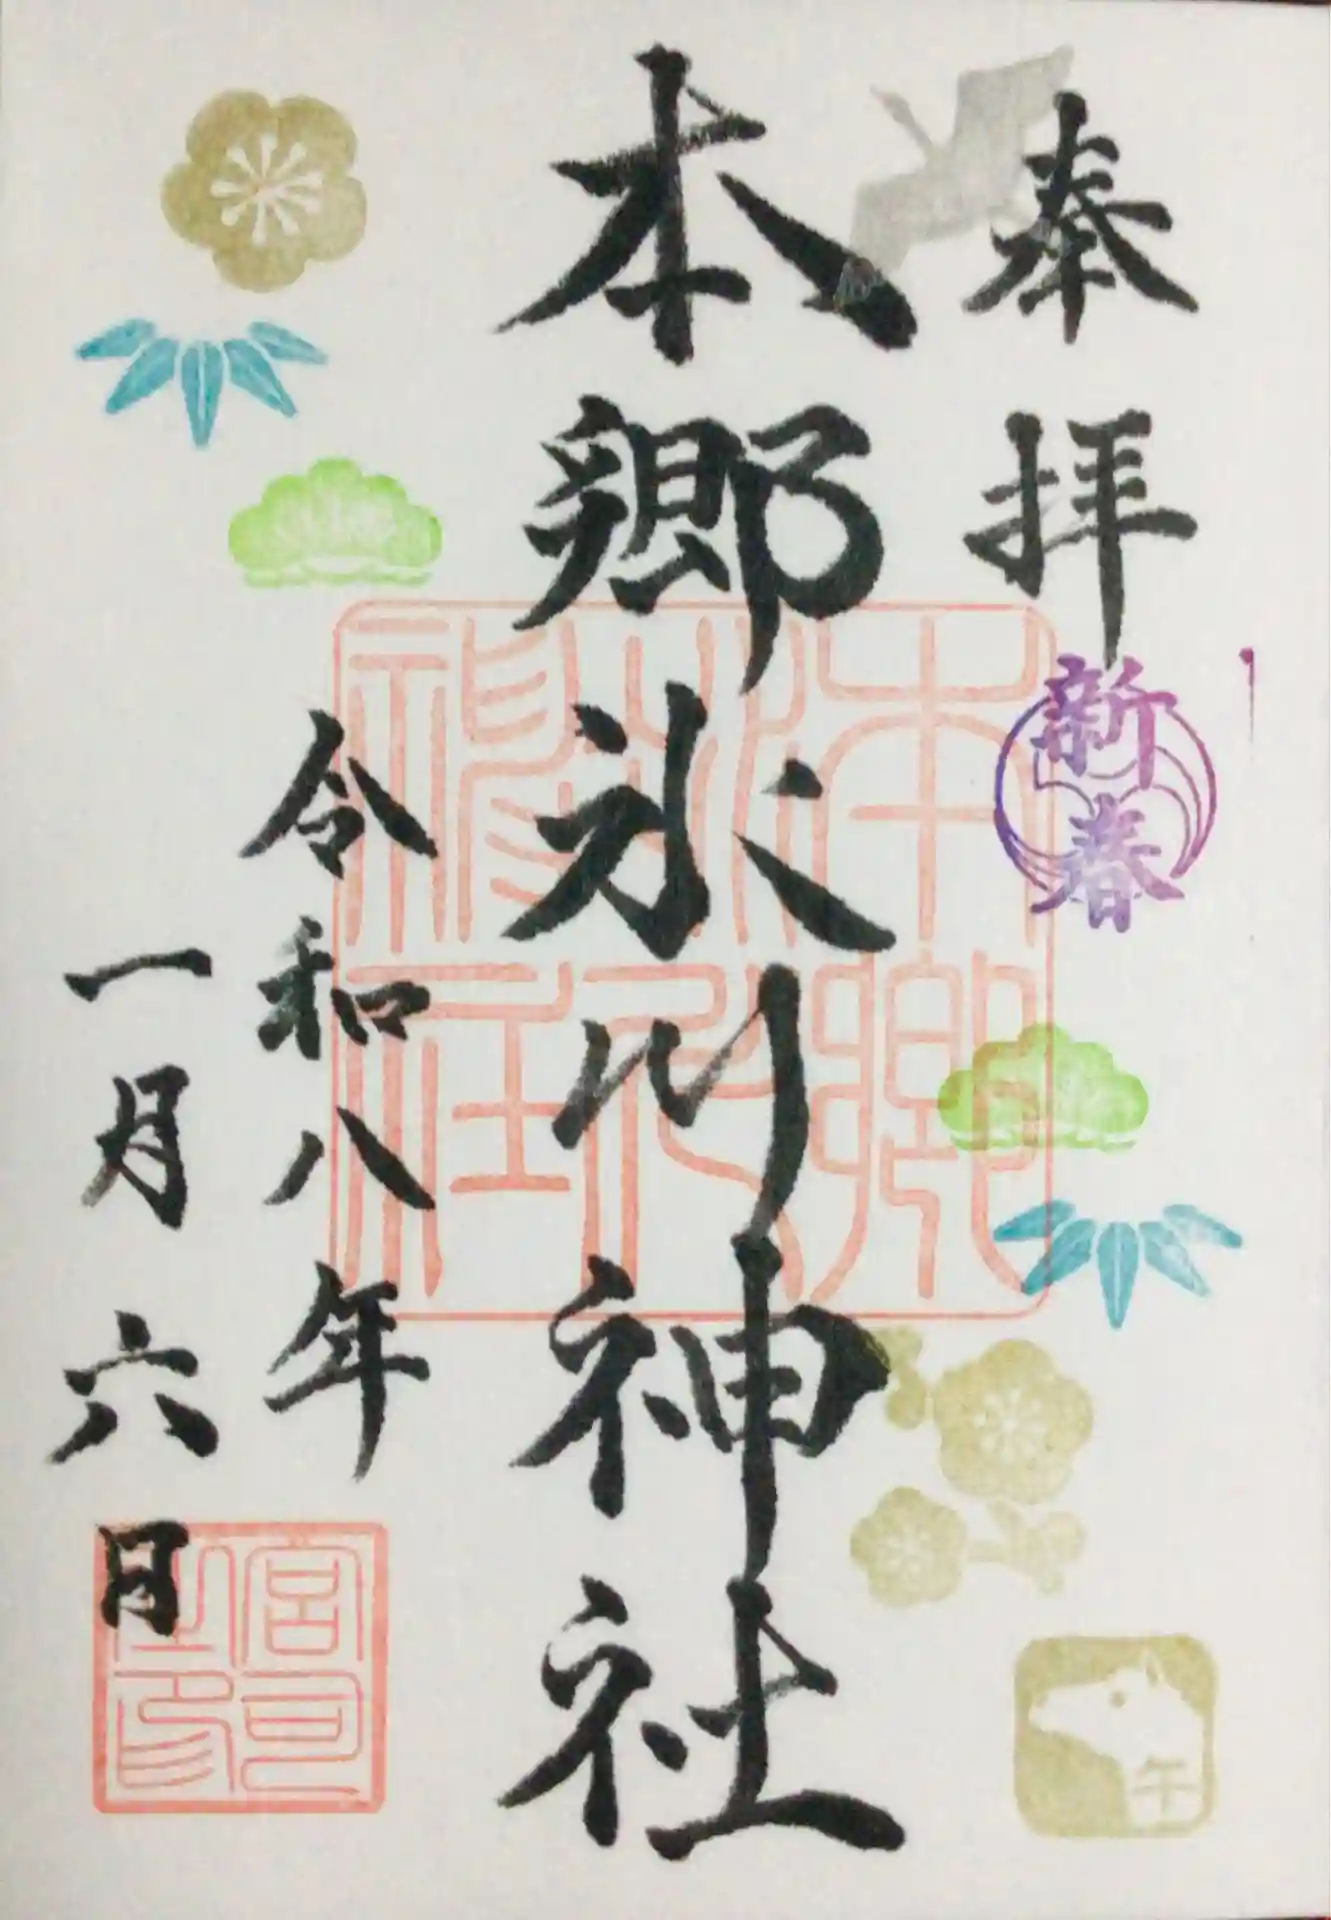 奉拝
新春
本郷氷川神社
令和八年
一月六日
本郷氷川神社
宮司之印
午